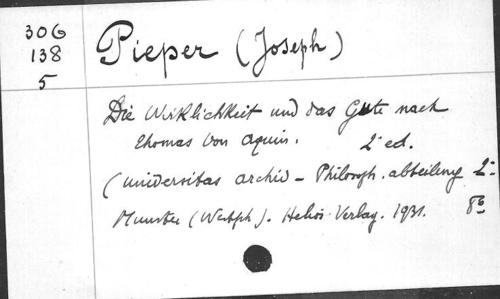 306
138
5
Pieper (Joseph)
Die Wirklichkeit und das Gute nach
Thomas von Aquin. 2ª ed.
(Universitas archiv - Philosoph. abteilung 2-
Munster (Westph). Helios-Verlag. 1931. 8º